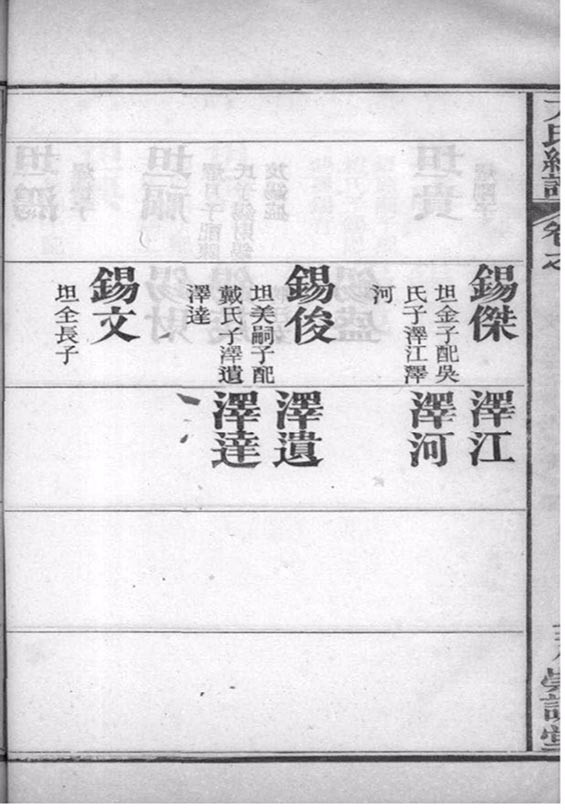 卷之
錫傑
坦金子配吳
氏子澤江澤
河
錫俊
坦美嗣子配
戴氏子澤遺
澤達
錫文
坦全長子
澤江
澤河
澤遺
澤達